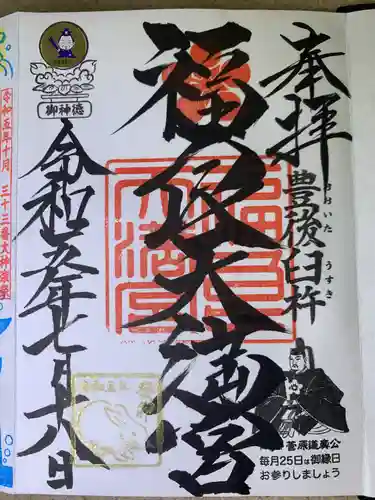 奉拝
豊後臼杵
おおいた うすき
福良天満宮
令和五年七月十八日
御神徳
菅原道真公
毎月25日は御縁日
お参りしましょう
令和五年十月